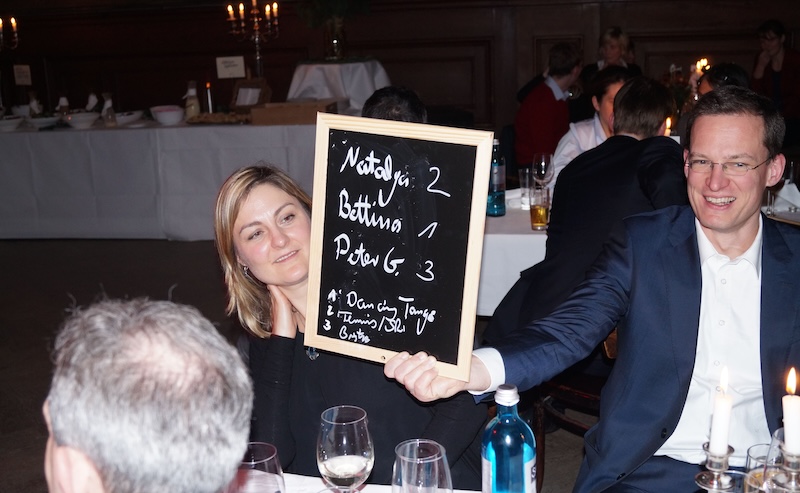 Natalya 2
Bettina 1
Peter G. 3
1 Dancing Tango
2 Tennis
3